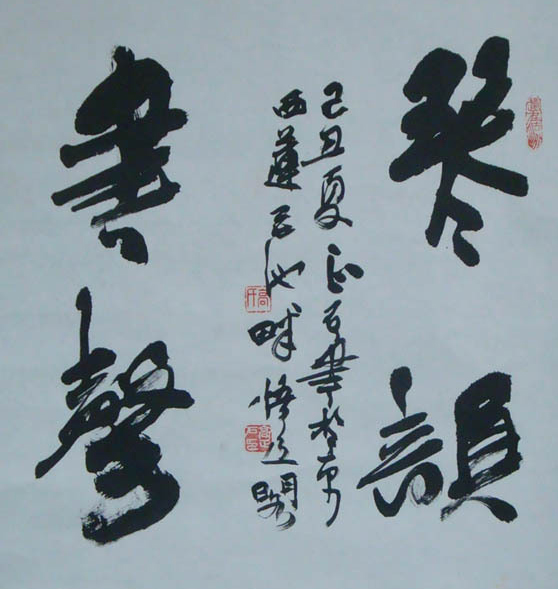 琴韻
己丑夏正石書於京
西蓮花池畔悟道閣
書聲